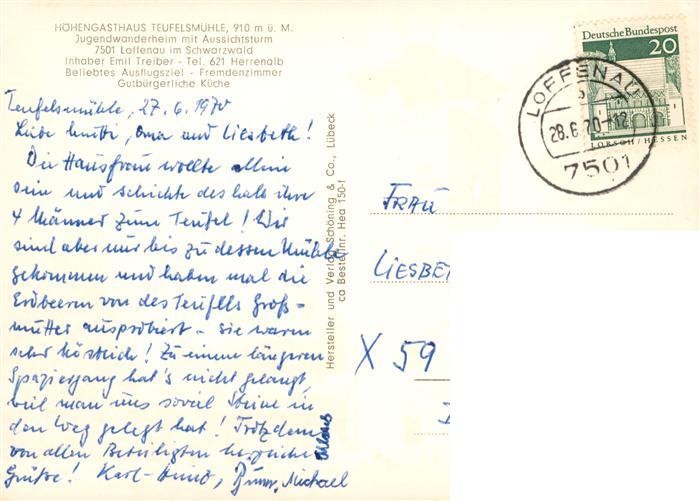 HÖHENGASTHAUS TEUFELSMÜHLE, 910 m ü. M.
Jugendwanderheim mit Aussichtsturm
7501 Loffenau im Schwarzwald
Inhaber Emil Treiber - Tel. 621 Herrenalb
Beliebtes Ausflugsziel - Fremdenzimmer
Gutbürgerliche Küche
Teufelsmühle, 27.6.1970
Liebe Mutti, Oma und Liesbeth!
Die Hausfrau wollte allein
sein und schickte deshalb ihre
4 Männer zum Teufel! Wir
sind aber nur bis zu dessen Mühle
gekommen und haben mal die
Erdbeeren von des Teufels Groß-
mutter ausprobiert - sie waren
sehr köstlich! Zu einem längeren
Spaziergang hat's nicht gelangt,
weil man uns soviel Steine in
den Weg gelegt hat! Trotzdem
von allen Beteiligten herzliche
Grüße! Karl-Heinz, Michael
Hersteller und Verlag Schöning & Co., Lübeck
ca Bestellnr. Hea 150-f
Deutsche Bundespost
20
LORSCH/HESSEN
LOFFENAU
b
28.6.70-12
7501
FRAU
LIESBE
X 59